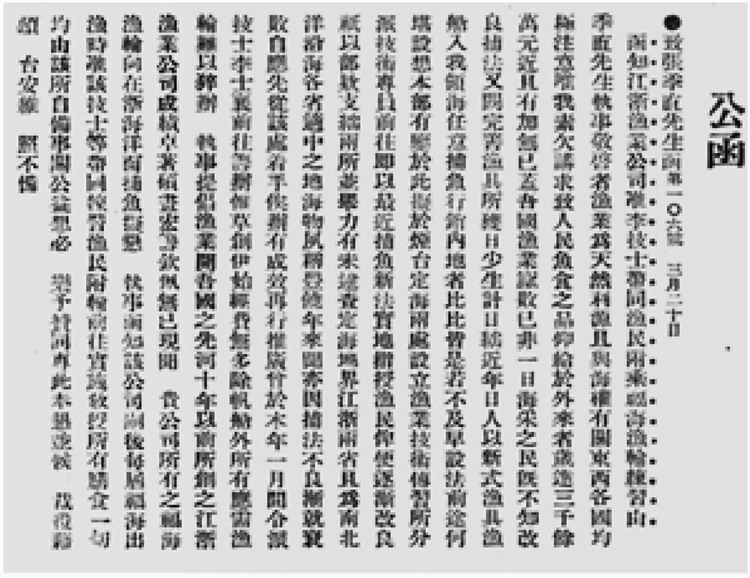 公函
●致張季直先生函第一〇六號　三月二十日
函知江浙漁業公司准李技士帶同漁民附乘福海漁輪練習由
季直先生執事敬啓者漁業爲天然利漁且與海權有關東西各國均
極注意唯我素欠講求致人民魚食之品仰給於外來者歲逾三千餘
萬元近且有加無已蓋吾國漁業窳敗已非一日海采之民旣不知改
良捕法又間完善漁具所獲日少生計日絀近年日人以新式漁具漁
船入我領海任意捕魚行銷內地者比比皆是若不及早設法前途何
堪設想本部有鑒於此擬於煙台定海兩處設立漁業技術傳習所分
派技術專員前往卽以最近捕魚新法實地指授漁民俾便逐漸改良
祇以部欵支絀兩所並擧力有未逮查定海地界江浙兩省且爲南北
洋沿海各省適中之地海物夙稱豐饒年來聞亦因捕法不良漸就衰
敗自應先從該處着手俟辦有成效再行推廣曾於本年一月間令派
技士李士襄前往籌辦惟草創伊始經費無多除帆船外所有應需漁
輪無以籌辦　執事提倡漁業開吾國之先河十年以前所創之江浙
漁業公司成績卓著碩畫宏籌欽佩無已現聞　貴公司所有之福海
漁輪向在浙海洋面捕魚擬懇　執事函知該公司嗣後每屆福海出
漁時准該技士等帶同練習漁民附輪前往實施敎授所有膳食一切
均由該所自備事關公益想必　樂予贊同專此奉懇並候　裁復籍
頌　台安維　照不備